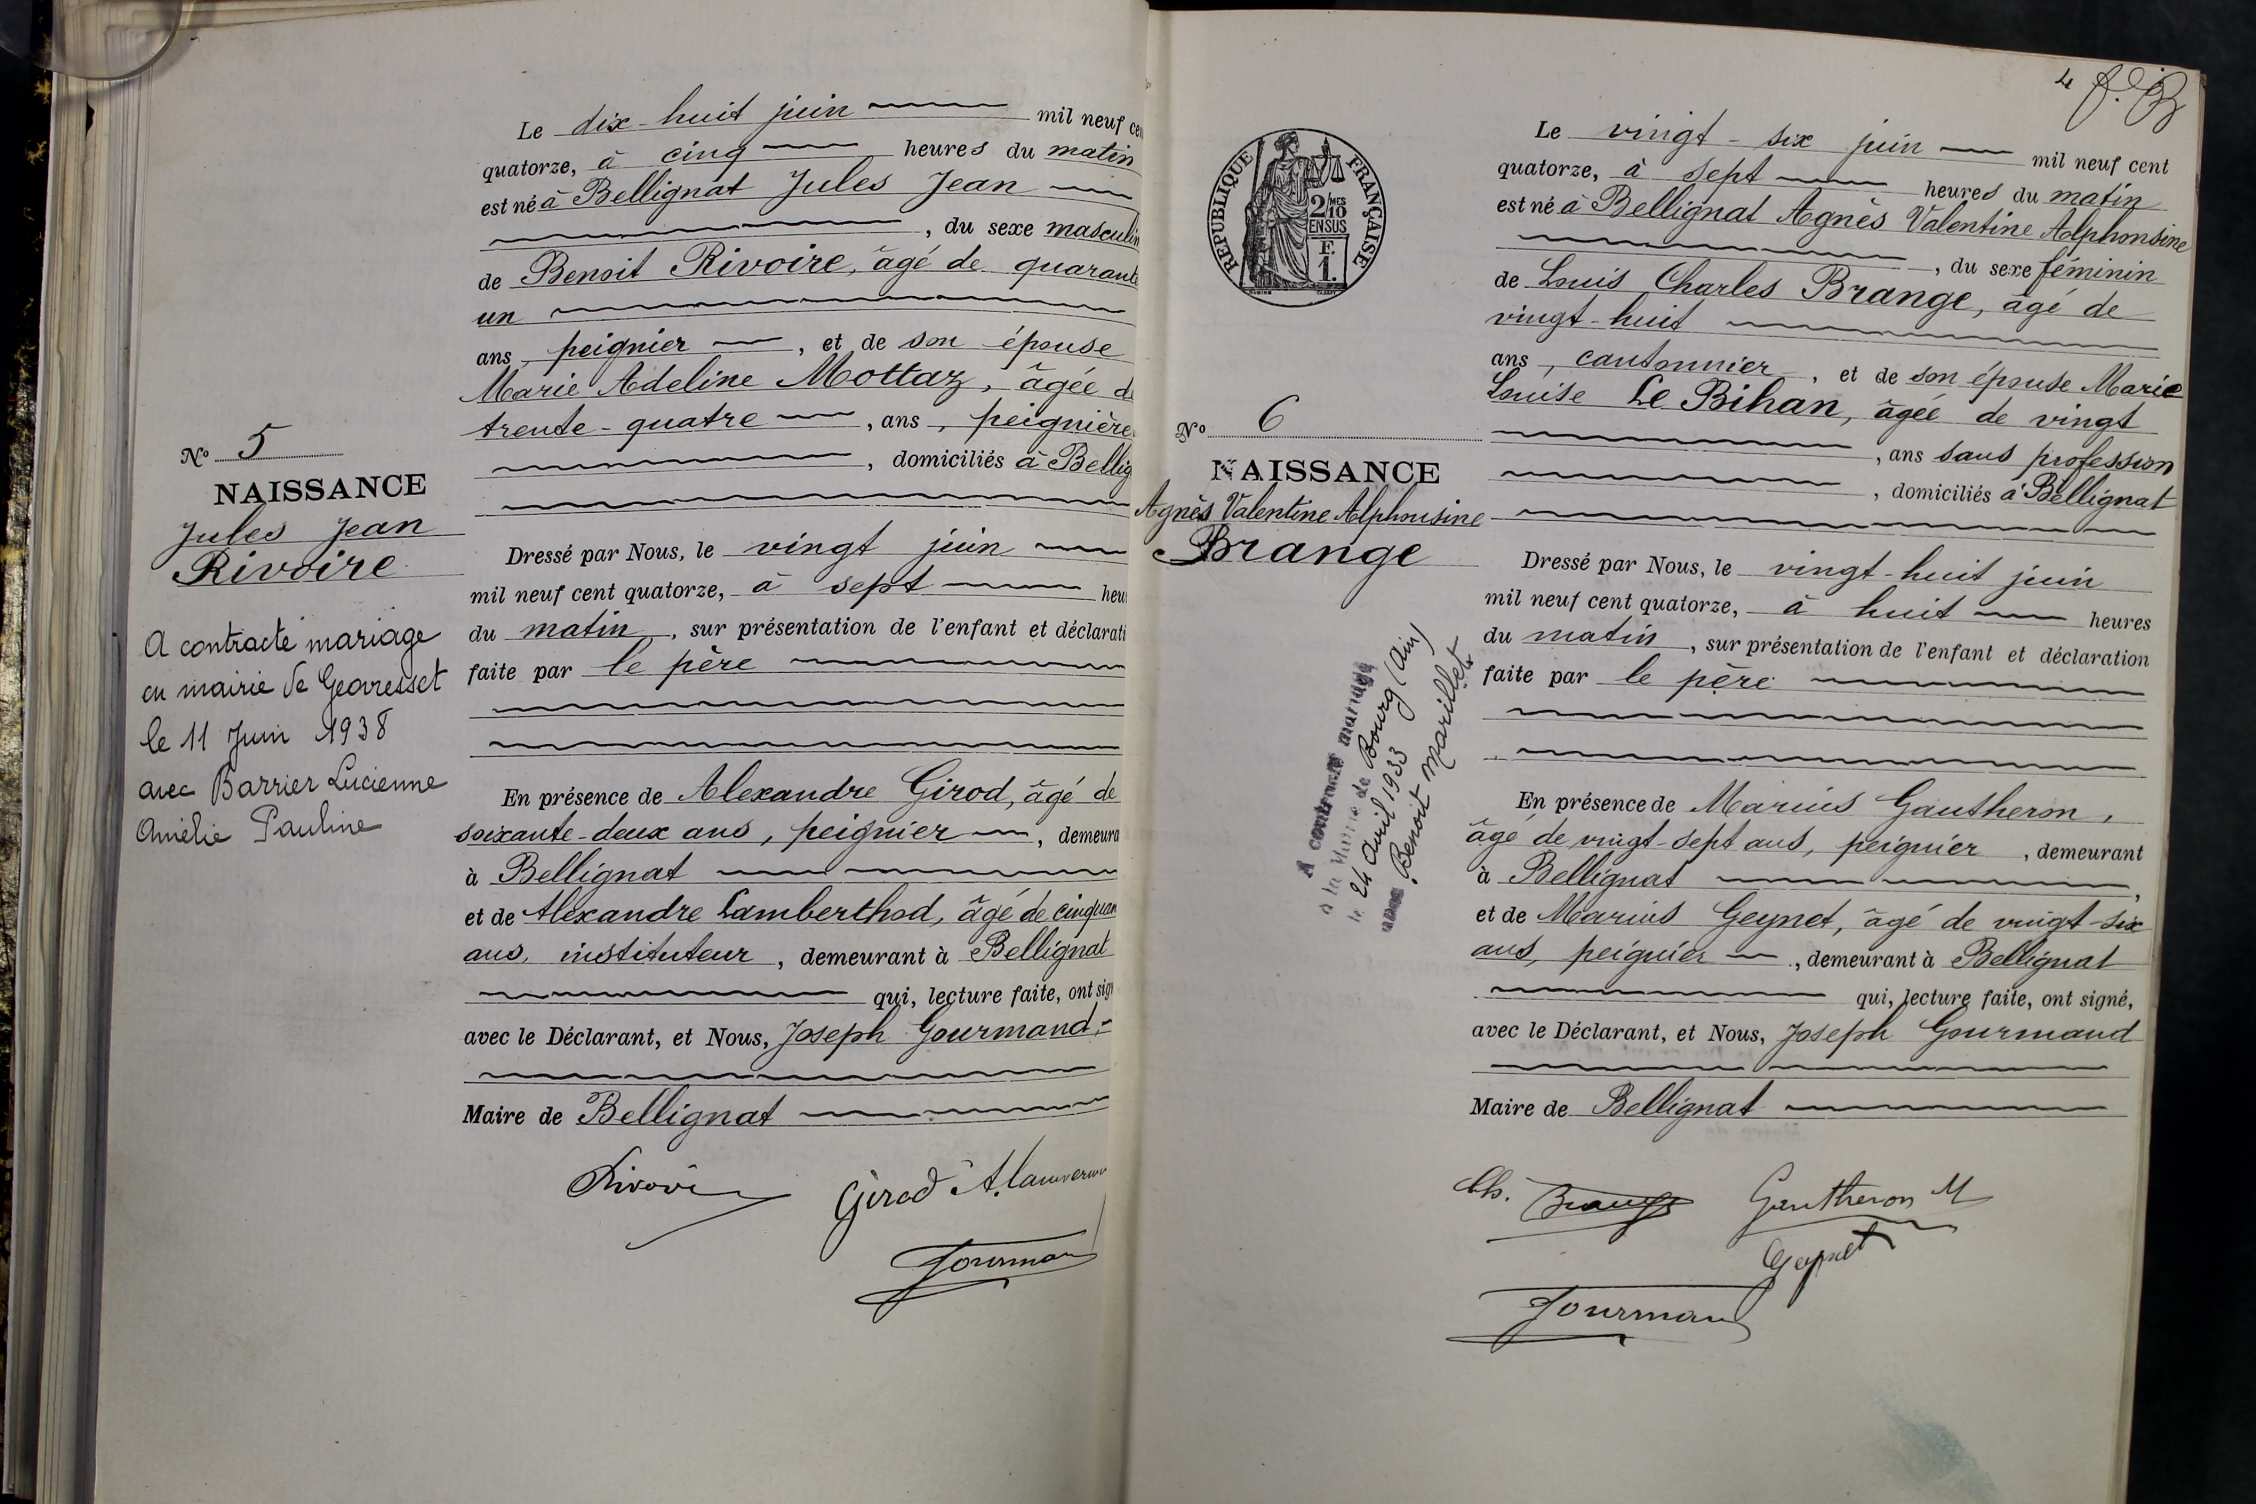 Le dix-huit juin mil neuf cen
quatorze, à cinq heures du matin
est né à Bellignat Jules Jean
, du sexe masculin
de Benoit Rivoire, âgé de quarante
un
ans, peignier, et de son épouse
Marie Adeline Mottaz, âgée de
trente-quatre, ans, peignière
, domiciliés à Bellig
No 5
NAISSANCE
Jules Jean
Rivoire
A contracté mariage
en mairie de Geovresset
le 11 Juin 1938
avec Barrier Lucienne
Amélie Pauline
Dressé par Nous, le vingt juin
mil neuf cent quatorze, à sept heu
du matin, sur présentation de l'enfant et déclarati
faite par le père
En présence de Alexandre Girod, âgé de
soixante-deux ans, peignier, demeura
à Bellignat
et de Alexandre Lamberthod, âgé de cinquan
ans, instituteur, demeurant à Bellignat
qui, lecture faite, ont sig
avec le Déclarant, et Nous, Joseph Gourmand,
Maire de Bellignat
Rivoire
Girod
Gourman
4
RÉPUBLIQUE FRANÇAISE
2/10 MES
EN SUS
F.
1.
Le vingt-six juin mil neuf cent
quatorze, à sept heures du matin
est né à Bellignat Agnès Valentine Alphonsine
, du sexe féminin
de Louis Charles Brange, âgé de
vingt-huit
ans, cantonnier, et de son épouse Marie
Louise Le Bihan, âgée de vingt
, ans sans profession
, domiciliés à Bellignat
No 6
NAISSANCE
Agnès Valentine Alphonsine
Brange
A contracté mariage
à la Mairie de Bourg (Ain)
le 24 Avril 1933
avec Benoit Marillet
Dressé par Nous, le vingt-huit juin
mil neuf cent quatorze, à huit heures
du matin, sur présentation de l'enfant et déclaration
faite par le père
En présence de Marius Gautheron,
âgé de vingt-sept ans, peignier, demeurant
à Bellignat,
et de Marius Geynet, âgé de vingt-six
ans, peignier, demeurant à Bellignat
qui, lecture faite, ont signé,
avec le Déclarant, et Nous, Joseph Gourmand
Maire de Bellignat
Ch. Brange
Gautheron M
Geynet
Gourmand